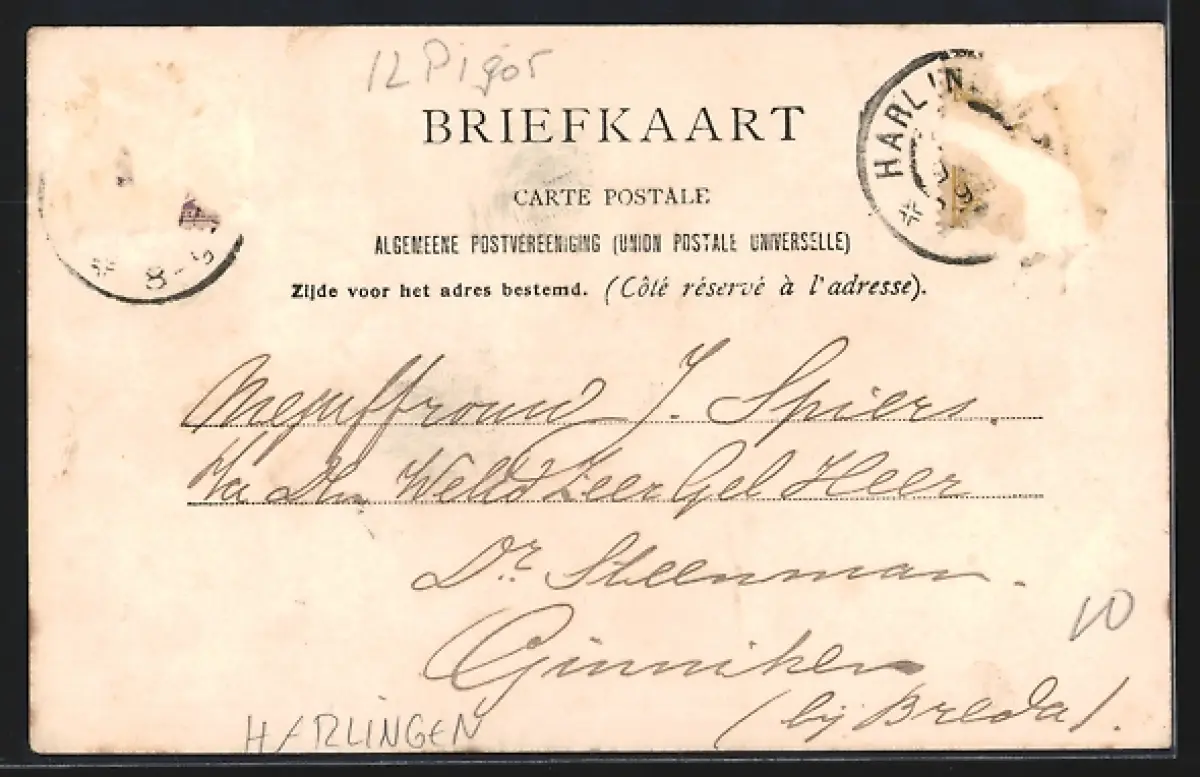 BRIEFKAART
HARLIN
CARTE POSTALE
ALGEMEENE POSTVEREENIGING (UNION POSTALE UNIVERSELLE)
Zijde voor het adres bestemd. (Côté réservé à l'adresse).
8-9
Mejuffrouw J. Spiers.
Den Zeer Gel Heer
Dr. Steenman.
Ginniken
(bij Breda).
10
HARLINGEN